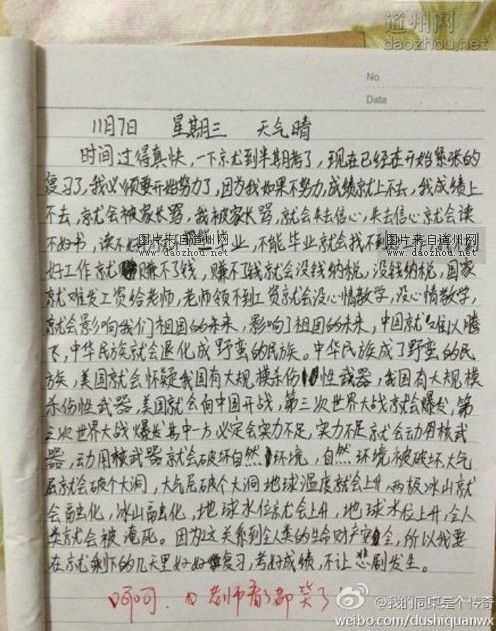 道州网
daozhou.net
No.
Data
11月7日 星期三 天气晴
时间过得真快，一下就到半期考了，现在已经在开始紧张的
复习了，我必须要开始努力了，因为我如果不努力，成绩就上不去，我成绩上
不去，就会被家长骂，我被家长骂，就会失去信心，失去信心就会读
不好书，读不好书就不能毕业，不能毕业就会找不到
好工作就赚不了钱，赚不了钱就会没钱纳税，没钱纳税，国家
就难发工资给老师，老师领不到工资就会没心情教学，没心情教学，
就会影响我们祖国的未来，影响了祖国的未来，中国就难以腾
飞，中华民族就会退化成野蛮的民族。中华民族成了野蛮的民
族，美国就会怀疑我国有大规模杀伤性武器，我国有大规模
杀伤性武器，美国就会向中国开战，第三次世界大战就会爆发，第
三次世界大战爆发其中一方必定会实力不足，实力不足就会动用核武
器，动用核武器就会破坏自然环境，自然环境被破坏，大气
层就会破个大洞，大气层破个大洞地球温度就会上升，两极冰山就
会融化，冰山融化，地球水位就会上升，地球水位上升，全人
类就会被淹死。因为这关系到全人类的生命财产安全，所以我要
在就剩下的几天里好好复习，考好成绩，不让悲剧发生。
呵呵，老师看了都笑了！
图片来自道州网
www.daozhou.net
图片来自道州网
www.daozhou.net
@我的同桌是个传奇
weibo.com/dushiquanwx